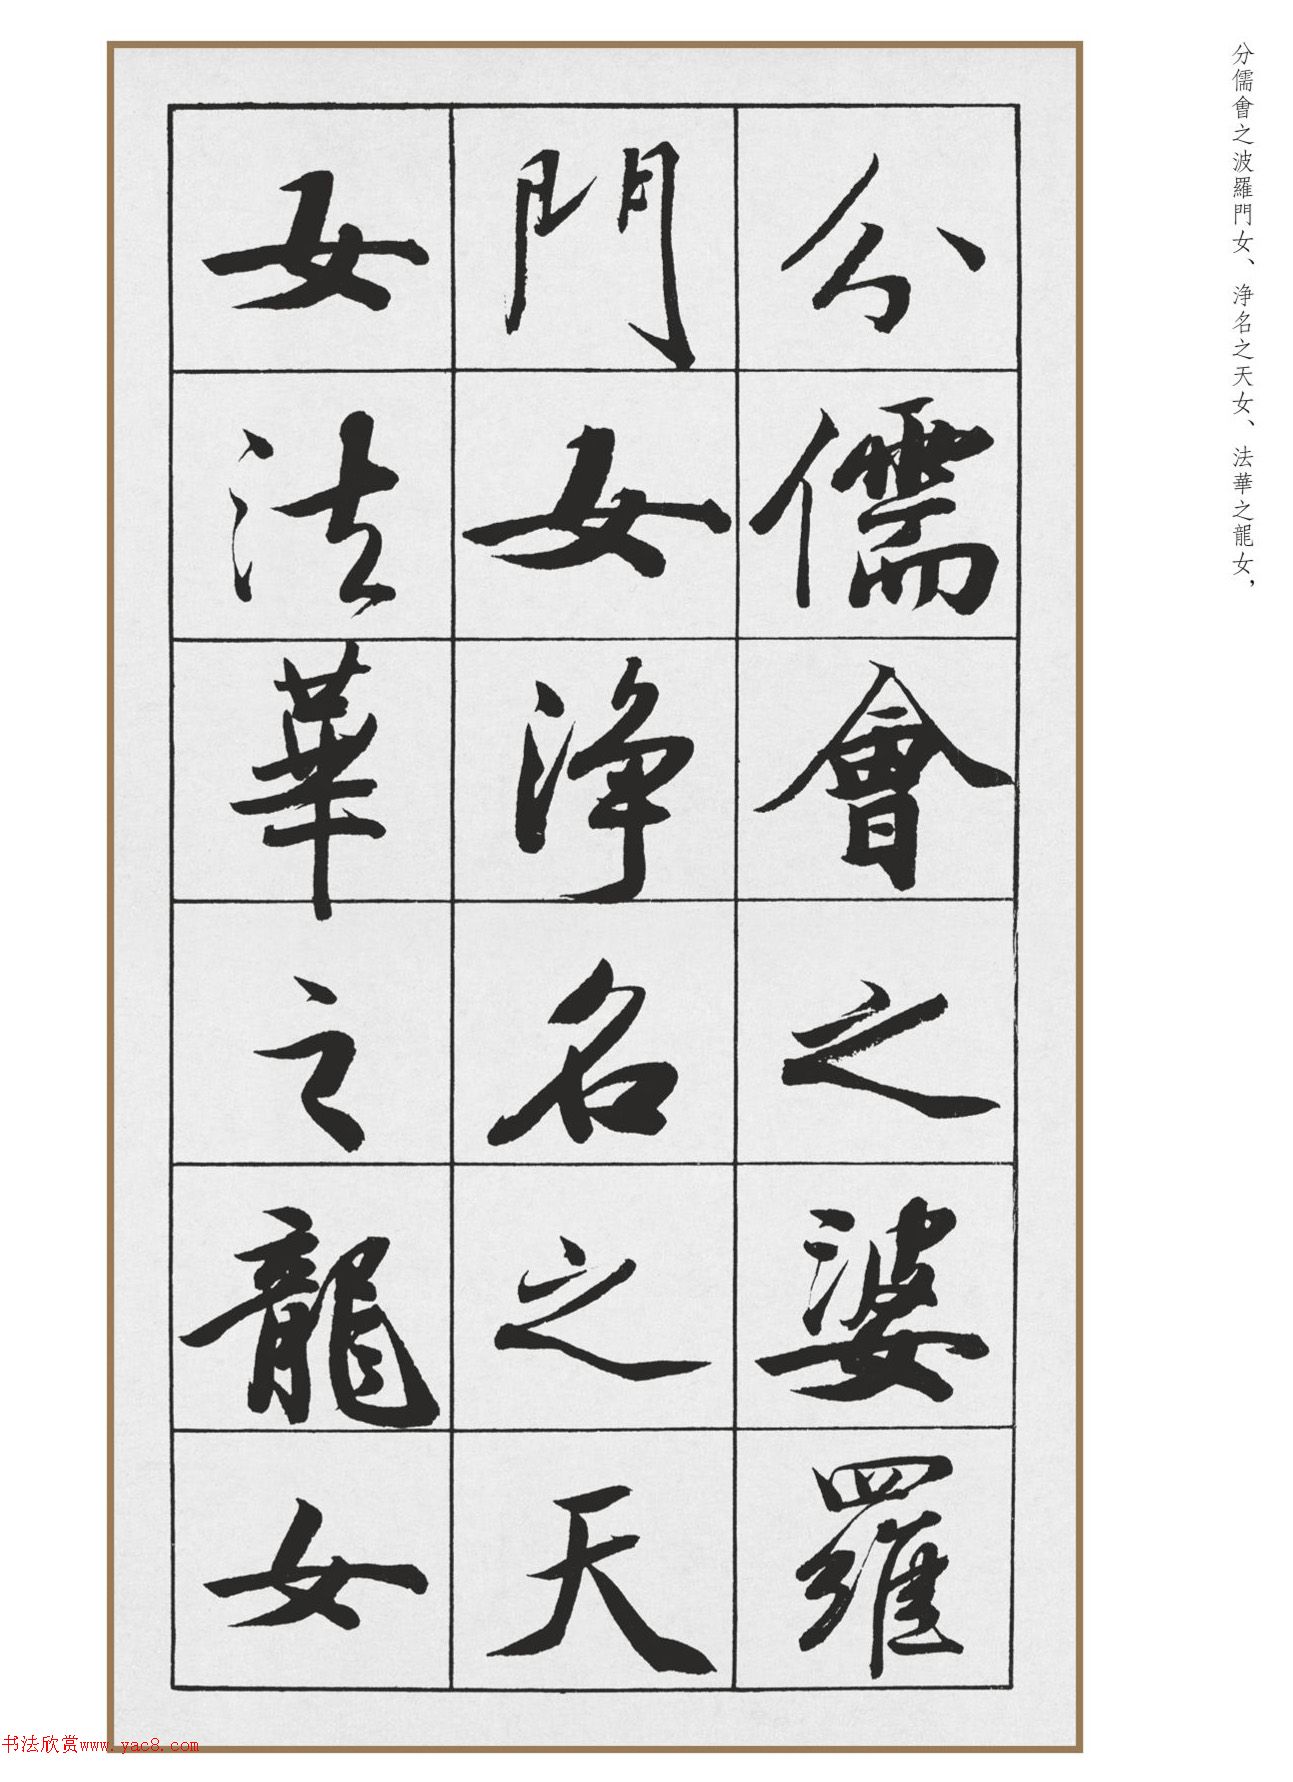 分儒會之波羅門女、淨名之天女、法華之龍女，
分儒會之婆羅
門女淨名之天
女法華之龍女
书法欣赏www.yac8.com